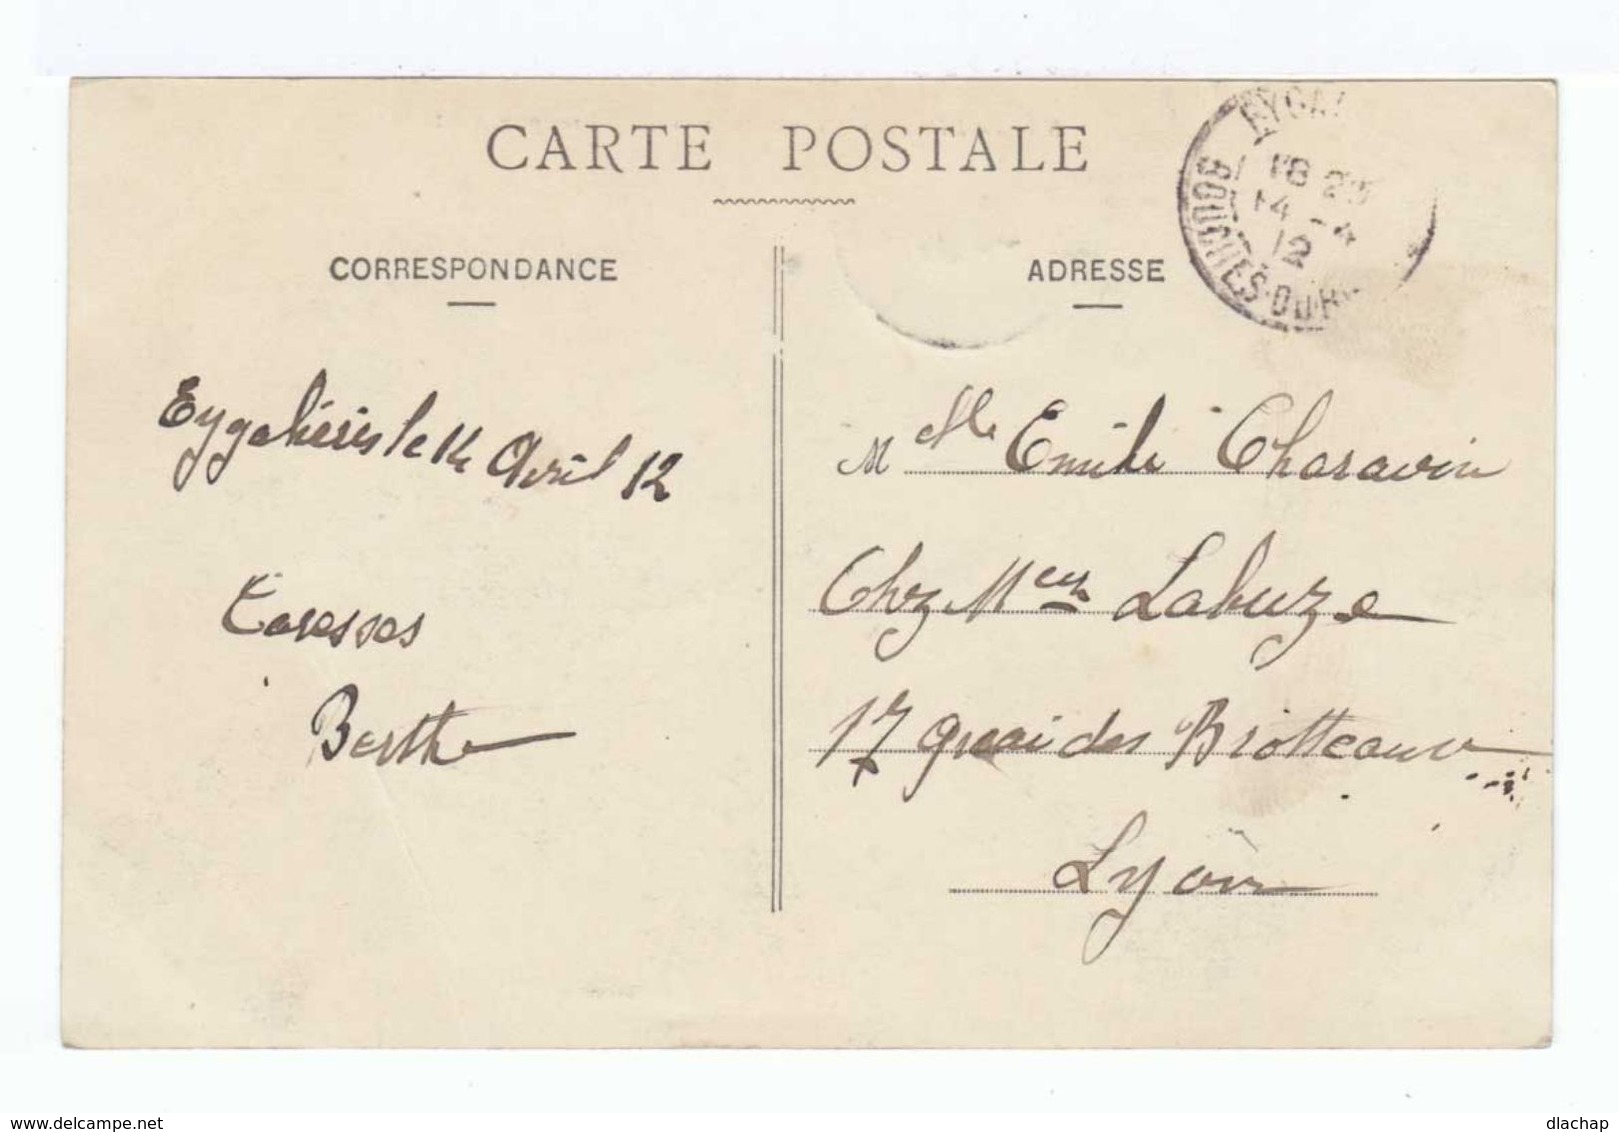 CARTE POSTALE
CORRESPONDANCE
ADRESSE
18 25
14 - 4
12
BOUCHES-DU-R
Eygalières le 14 Avril 12
Caresses
Berthe
M elle Emilie Charavin
Chez Meur Labuze
17 quai des Brotteaux
Lyon
www.delcampe.net
dlachap